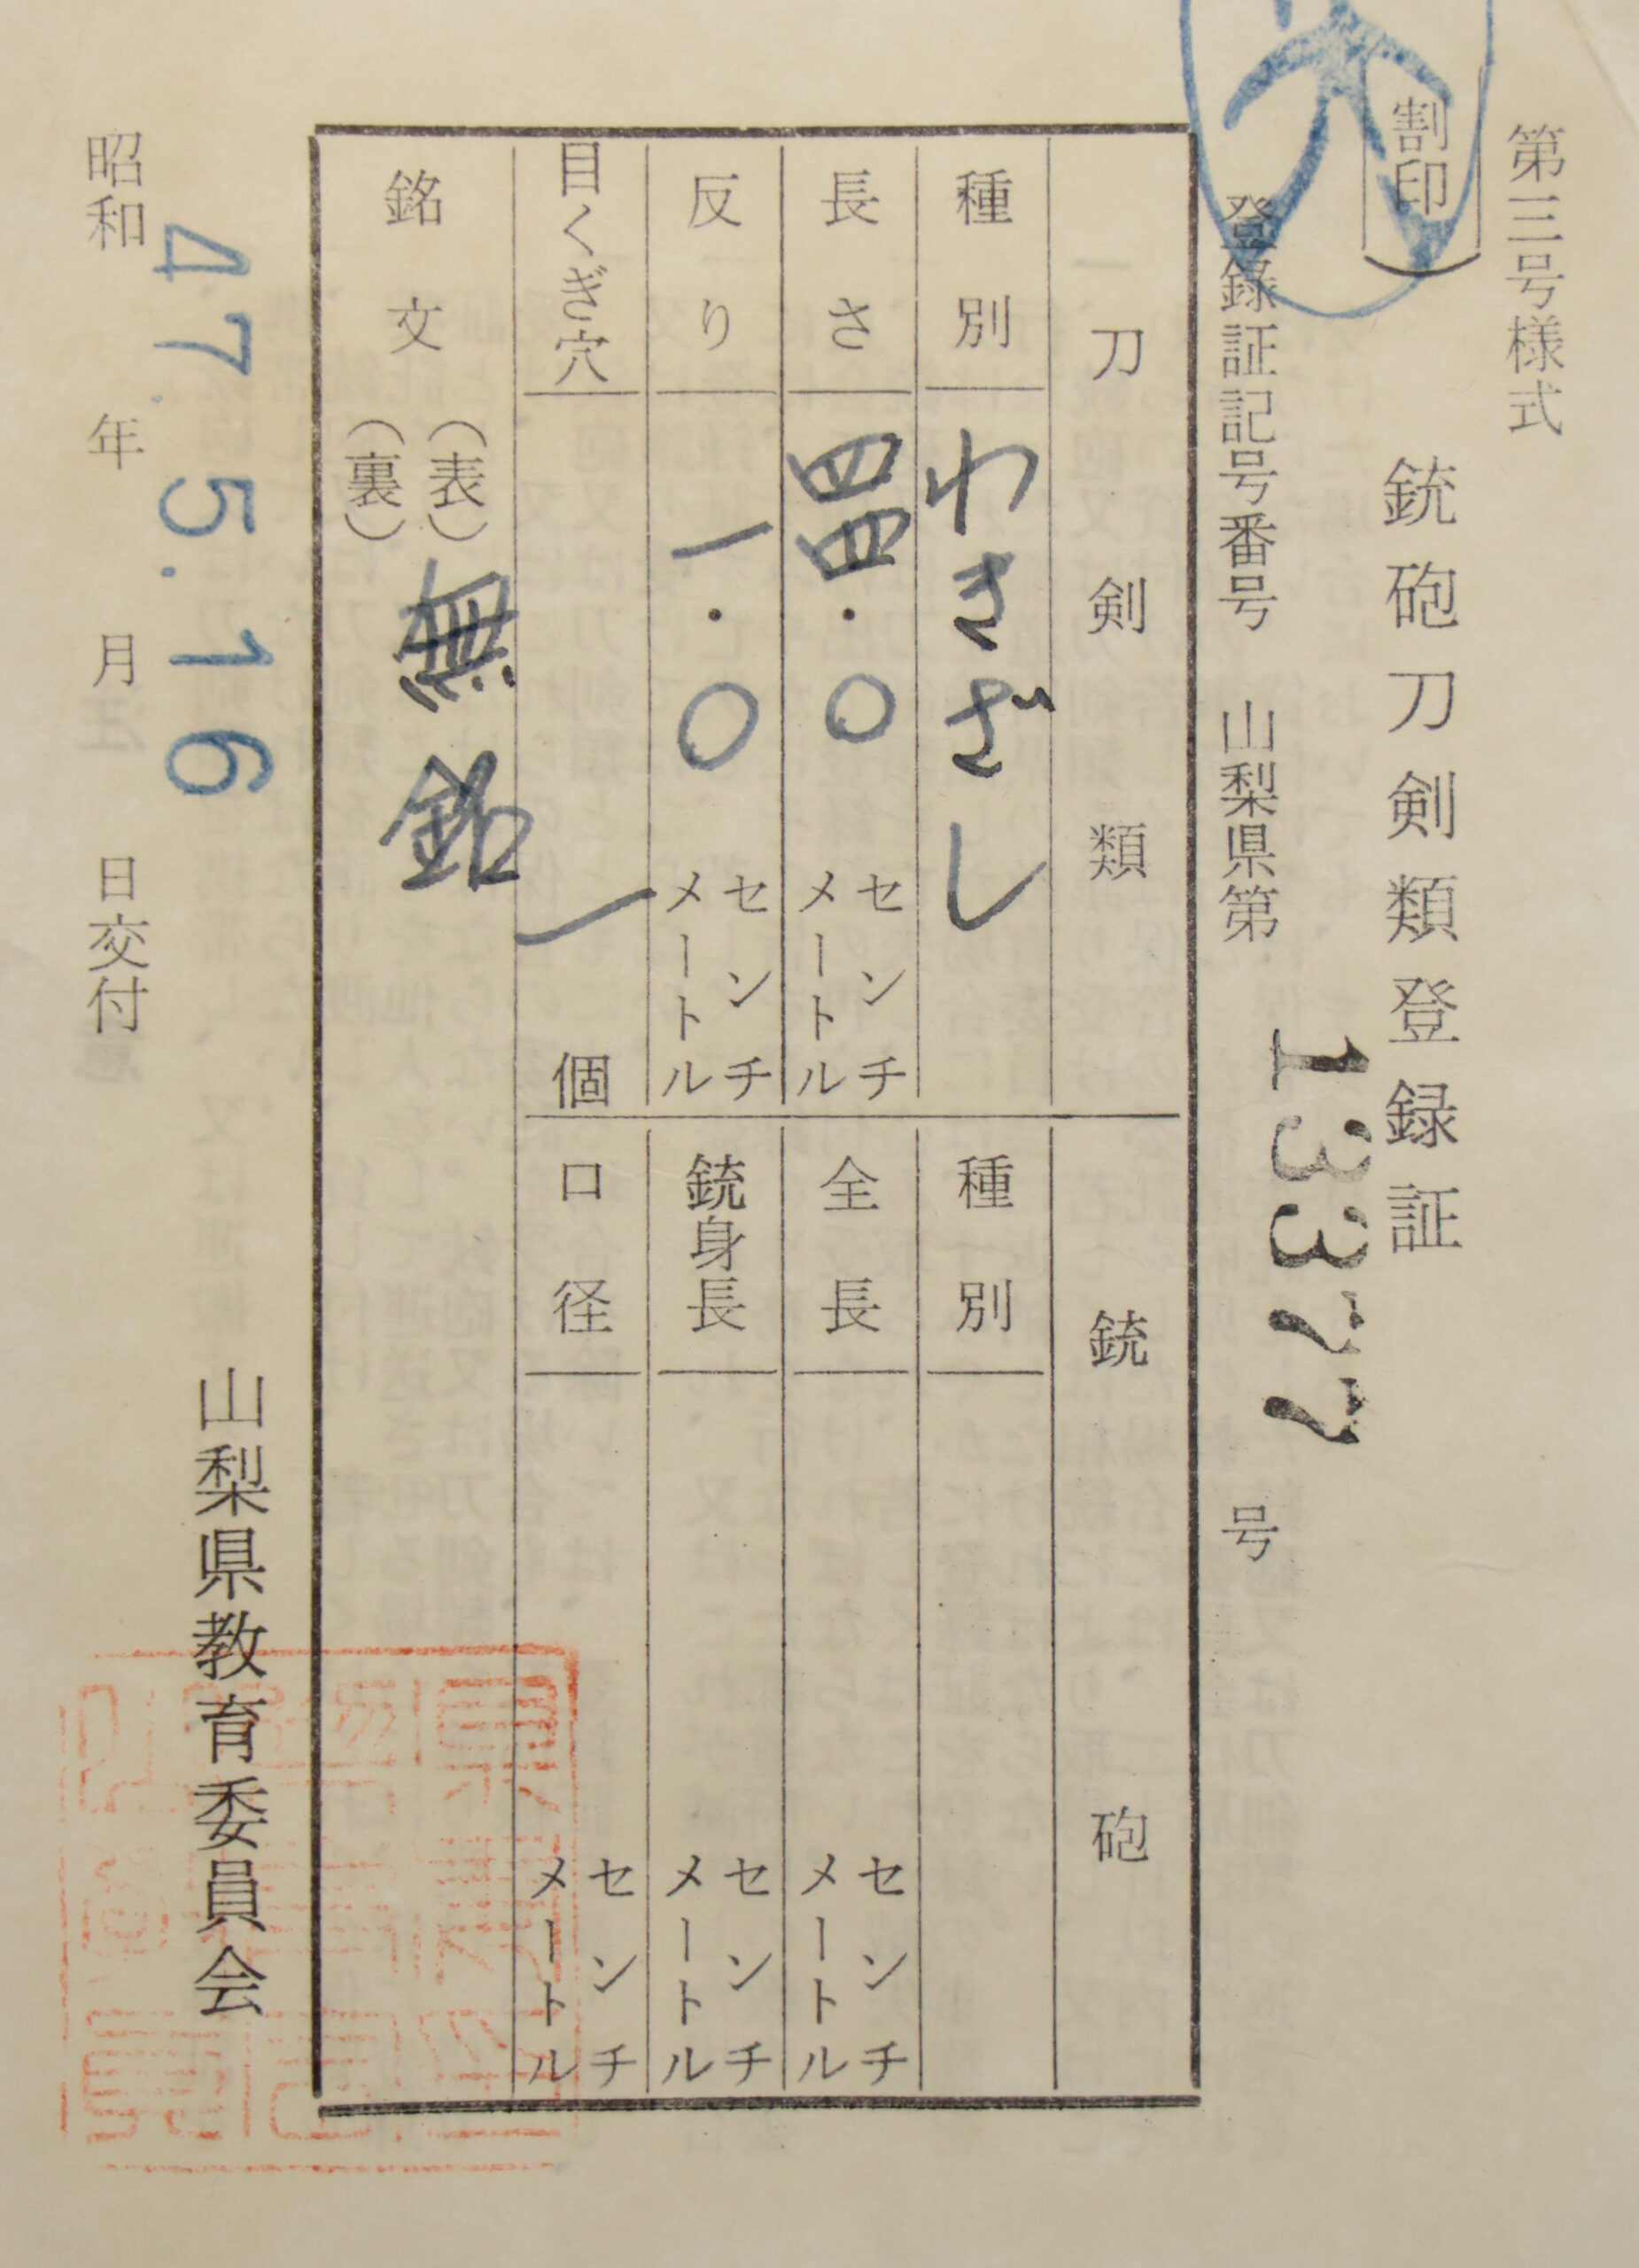 第三号様式
(割印)
銃砲刀剣類登録証
登録証記号番号 山梨県第 13377 号
刀剣類
銃砲
種別 わきざし
種別
長さ 四四・〇 センチメートル
全長 センチメートル
反り 一・〇 センチメートル
銃身長 センチメートル
目くぎ穴 一 個
口径 センチメートル
銘文 (表) 無銘
(裏)
山梨県教育委員会
47.5.16
昭和 年 月 日交付